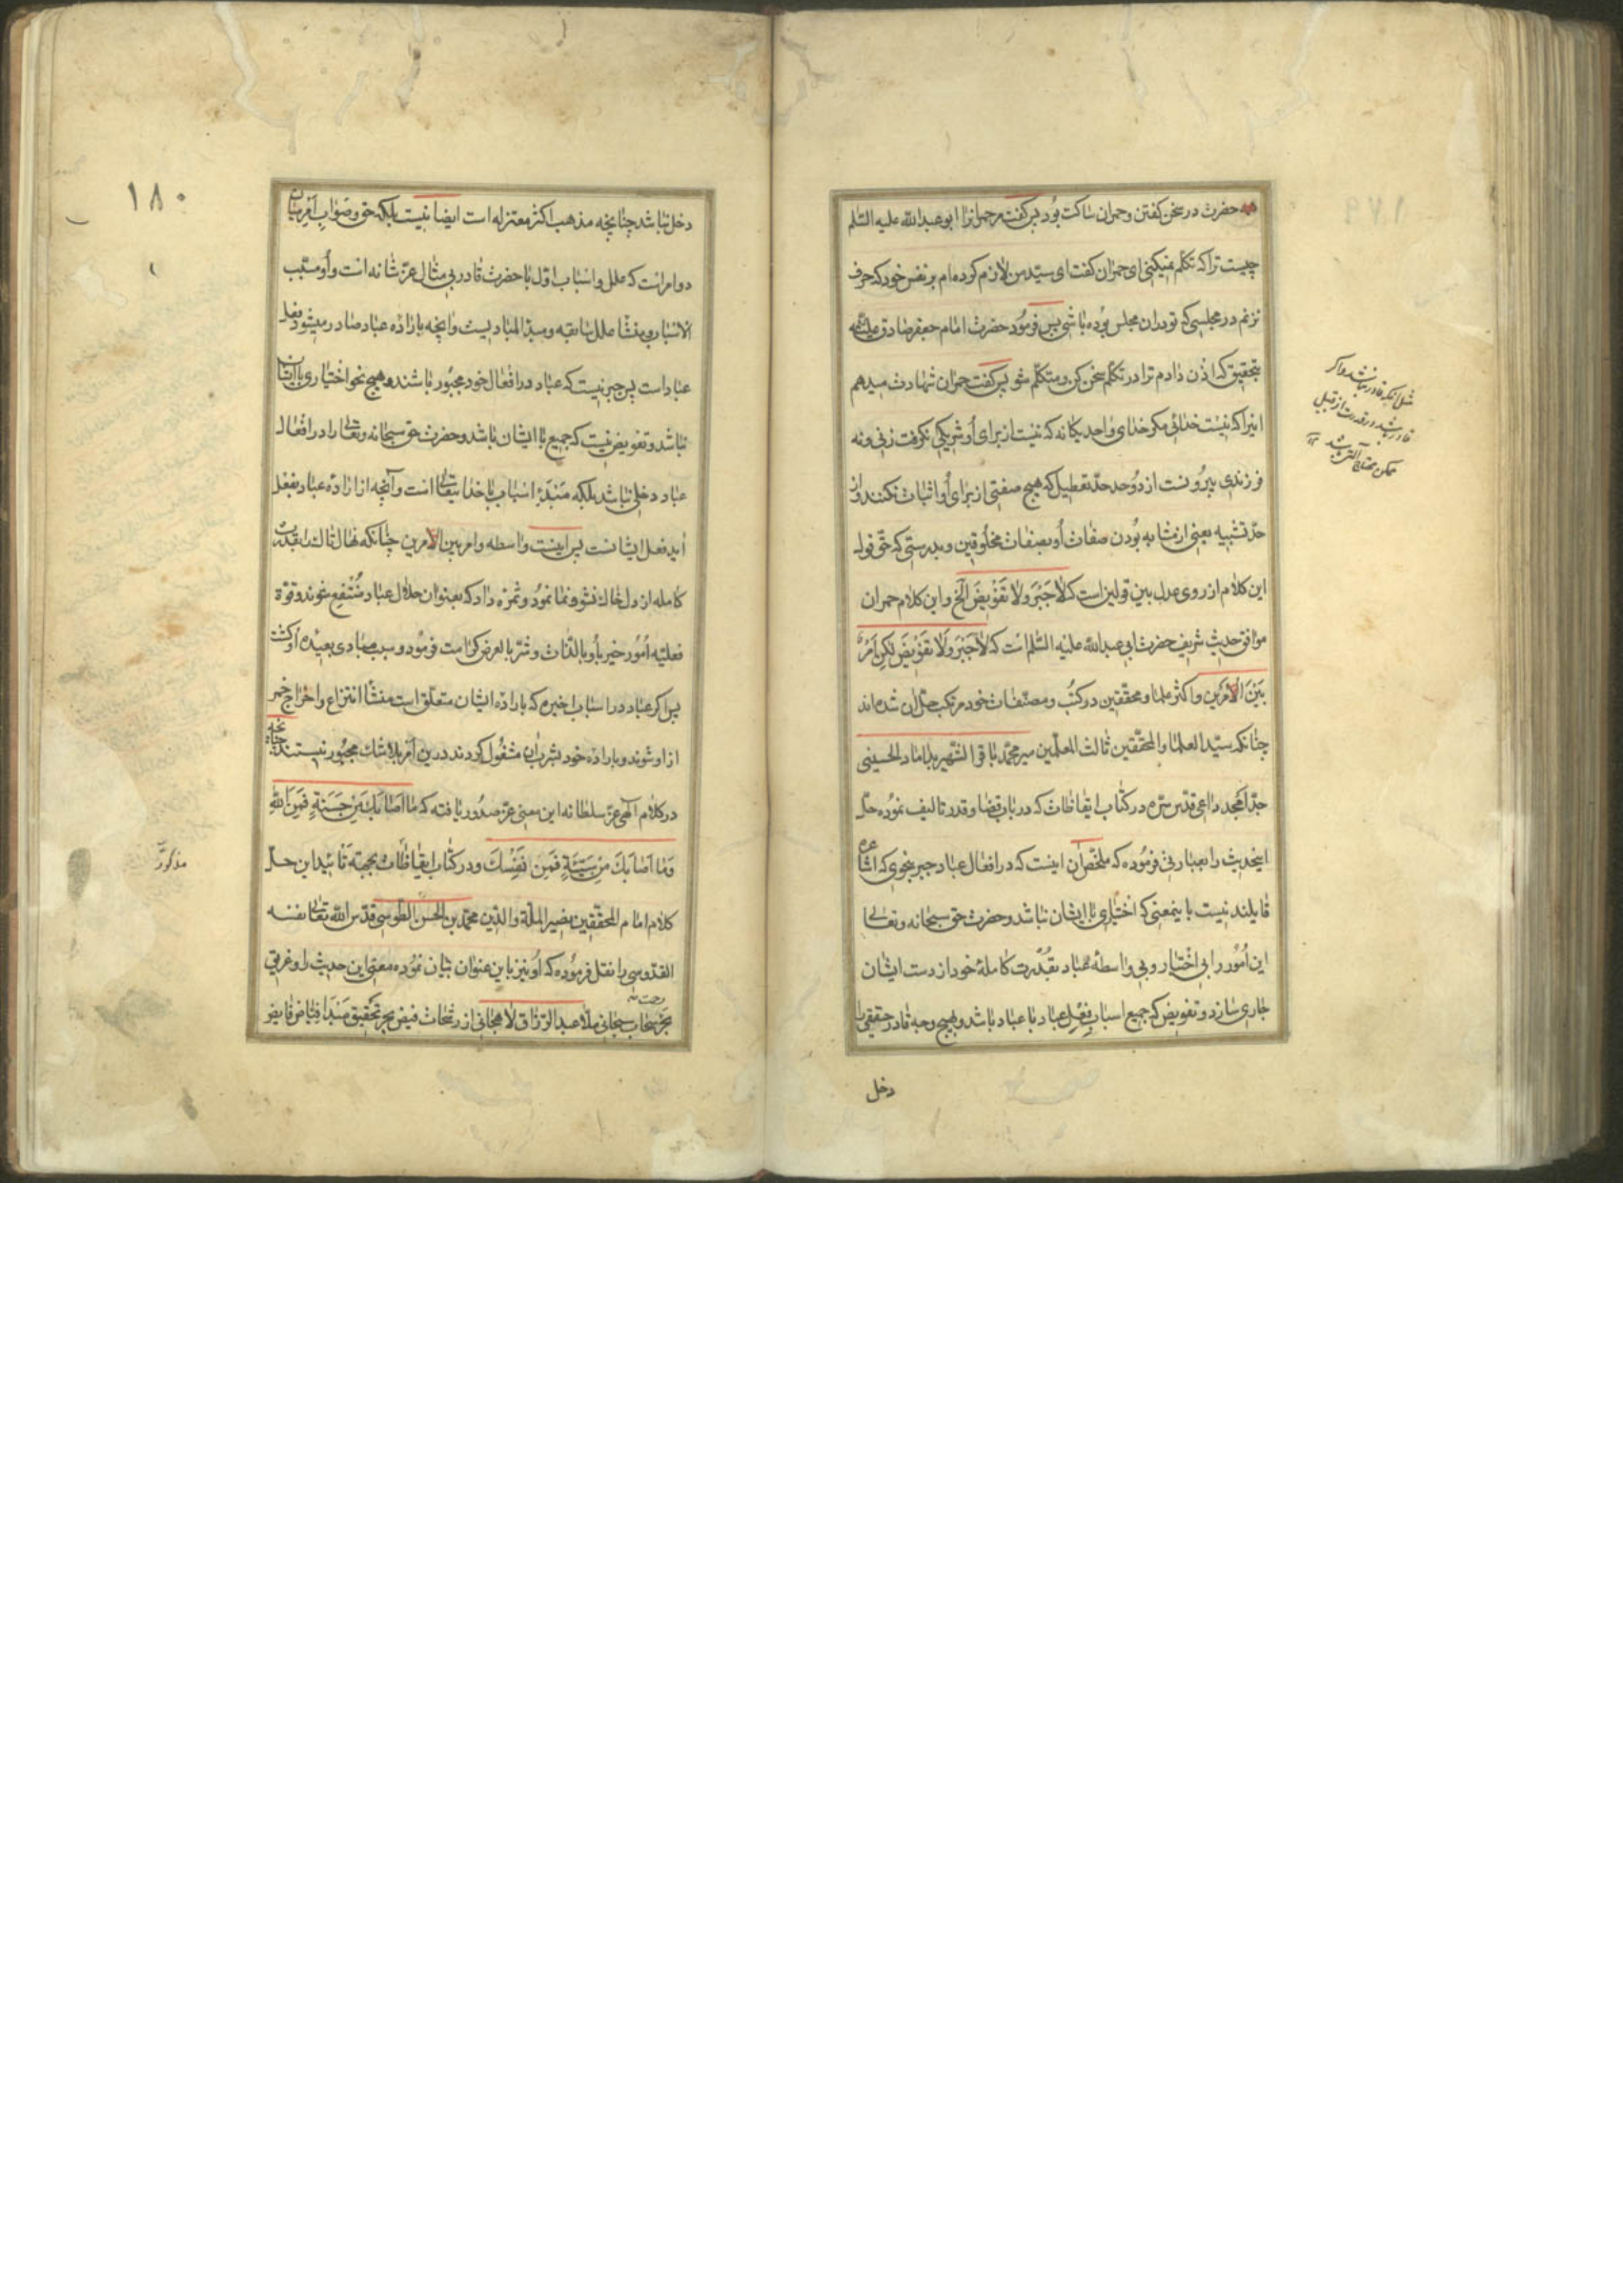 حضرت در سخن گفتن و حمران ساکت بود پس گفت مر حمرانرا ابو عبدالله علیه السّلم
چیست ترا که تکلّم نمیکنی ای حمران گفت ای سیّد من لازم کرده‌ام بر نفس خود که حرف
نزنم در مجلسی که تو در ان مجلس بوده باشی پس فرمود حضرت امام جعفر صادق علیه
بتحقیق که اذن دادم ترا در تکلّم سخن کن و متکلّم شو پس گفت حمران شهادت میدهم
اینرا که نیست خدائی مگر خدای واحد یکانه که نیست از برای او شریکی نگرفت زنی و نه
فرزندی بیرونست از دو حد حدّ تعطیل که هیچ صفتی از برای او اثبات نکنند و از
حدّ تشبیه یعنی از مشابه بودن صفات او بصفات مخلوقین و بدرستی که حقّ قول
این کلام از روی عدل بین قولین است که لا جَبْرَ وَلا تَفْویضَ الخ و این کلام حمران
موافق حدیث شریف حضرت ابی عبدالله علیه السّلم است که لا جَبْرَ وَلا تَفْویضَ لکِن اَمْرٌ
بَیْنَ الاَمْرَین و اکثر علما و محقّقین در کتُب و مصنّفات خود مرتکب حلّ ان شده‌اند
چنانکه سیّد العلماء والمحقّقین ثالث المعلّمین میر محمّد باقر الشّهیر بداماد الحسینی
جدّ امجد داعی قدّس سرّه در کتاب ایقاظات که در باب قضا و قدر تالیف نموده حلّ
اینحدیث را بعبارتی فرموده که ملخّص ان اینست که در افعال عباد جبر بنحوی که اشاعره
قایلند نیست باینمعنی که اختیاری با ایشان نباشد و حضرت حق سبحانه و تعالی
این امُور را بی اختیار و بی واسطهٔ عباد بقدرت کاملهٔ خود از دست ایشان
جاری سازد و تفویض که جمیع اسباب فِعْلِ عباد با عباد باشد و بهیچ وجه قادر حقیقی را
دخل
مثل آنکه قادر نباشد و اگر
قادر باشد و قدرت از قبیل
ممکن محتاج آلت باشد
۱۸۰
دخل نباشد چنانچه مذهب اکثر معتزله است ایضا نیست بلکه حق و صَواب اَمرِ میان
دو امر است که علل و اسباب اوّل با حضرت قادر بی مثال عزّ شانه است و او مسبّب
الاسباب و منشأ علل سابقه و مبدأ المبادیست و انچه باراده عباد صادر میشود فعل
عباد است پس جبر نیست که عباد در افعال خود مجبُور باشند و هیچ نحو اختیاری با ایشان
نباشد و تفویض نیست که جمیع با ایشان باشد و حضرت حق سبحانه و تعالی را در افعال
عباد دخلی نباشد بلکه مَبْدَءِ اسباب با خدایتعالی است و آنچه از ارادهٔ عباد بفعل
اید فعل ایشانست پس اینست واسطه و امر بین الامرین چنانکه نهال تاک را بقدرت
کامله از دل خاک نشو و نما نمود و ثمره داد که بعنوان حلال عباد مُنْتَفِع شوند و قوّة
فعلیّه امُور خیر با او بالذّات و شرّ بالعرض کرامت فرمود و سبب مبادی بعیده او گشت
پس اگر عباد در اسباب اخیره که باراده ایشان متعلّق است منشأ انتزاع و اخراج خمر
از او شوند و باراده خود بشرب ان مشغُول کردند درین اَمْر بلا شک مجبُور نیستند چنانچه
در کلام آلهی عزّ سلطانه این معنی عزّ صدُور یافته که مَا اَصابَكَ مِنْ حَسَنَةٍ فَمِنَ اللهِ
وَمَا اَصَابَكَ مِنْ سَیِّئَةٍ فَمِن نَفْسِكَ و در کتاب ایقاظات بجهة تائید این حلّ
کلام امام المحقّقین نصیر الملّة والدّین محمّد بن الحسن الطّوسی قدّس الله تعالی نفسه
القدّوسی را نقل فرموده که او نیز باین عنوان بیان نموده معنی این حدیث را و غریق
رحمت
بحر سحاب سبحانی ملا عبد الرّزاق لاهجانی از رشحات فیض بحر تحقیق مَبْدَا فیّاض فایض
مذکور